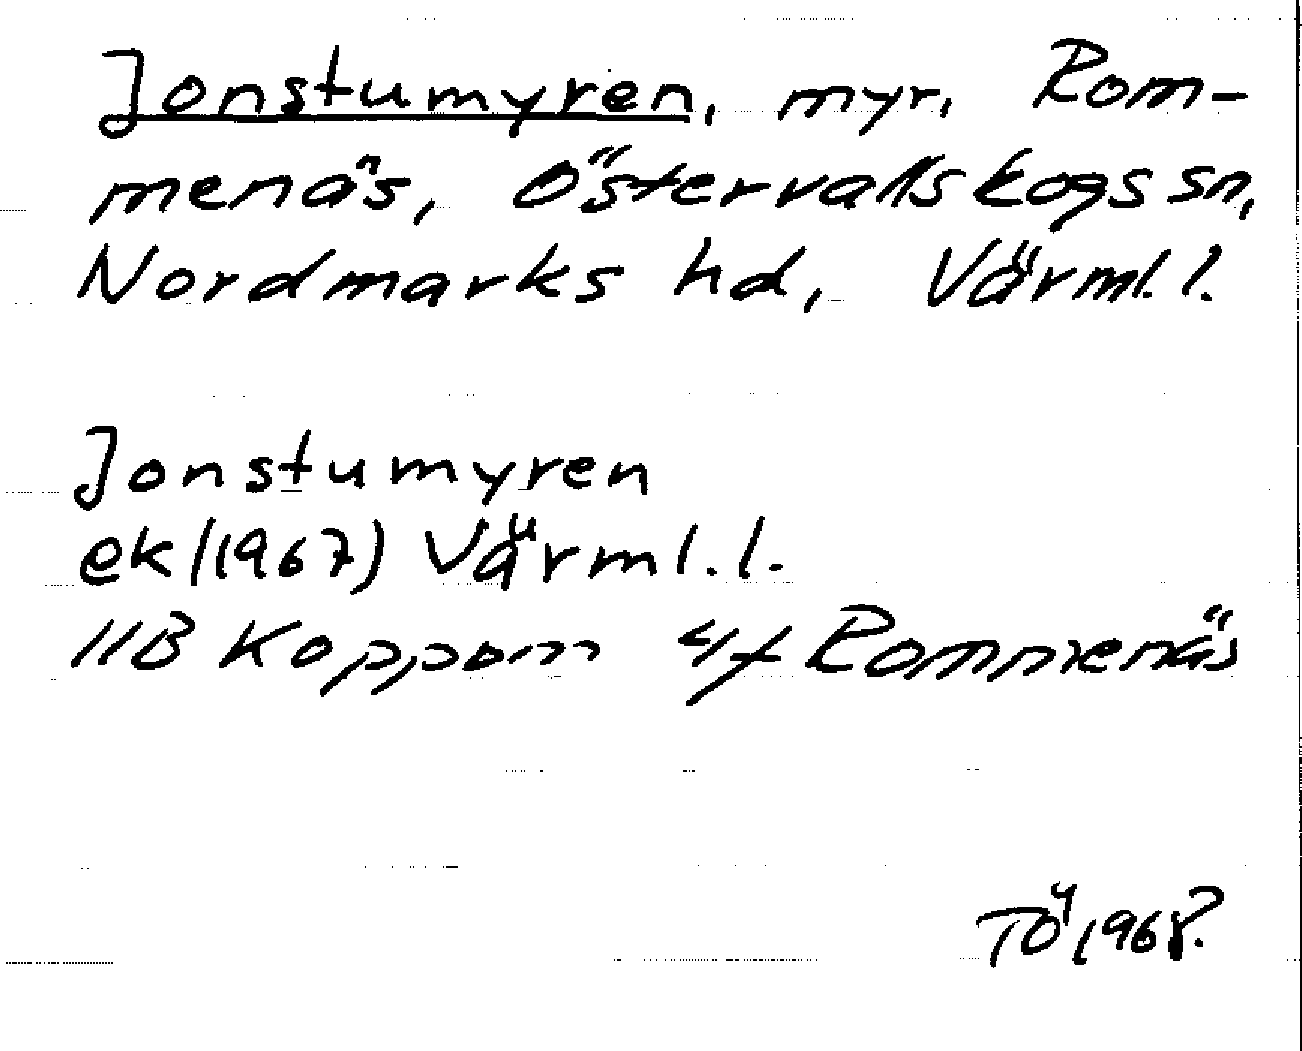 Jonstumyren, myr, Rom-
menäs, Östervallskogs sn,
Nordmarks hd, Värml.l.
Jonstumyren
ek (1967) Värml.l.
11B Koppom 4f Rommenäs
TÖ 1968.